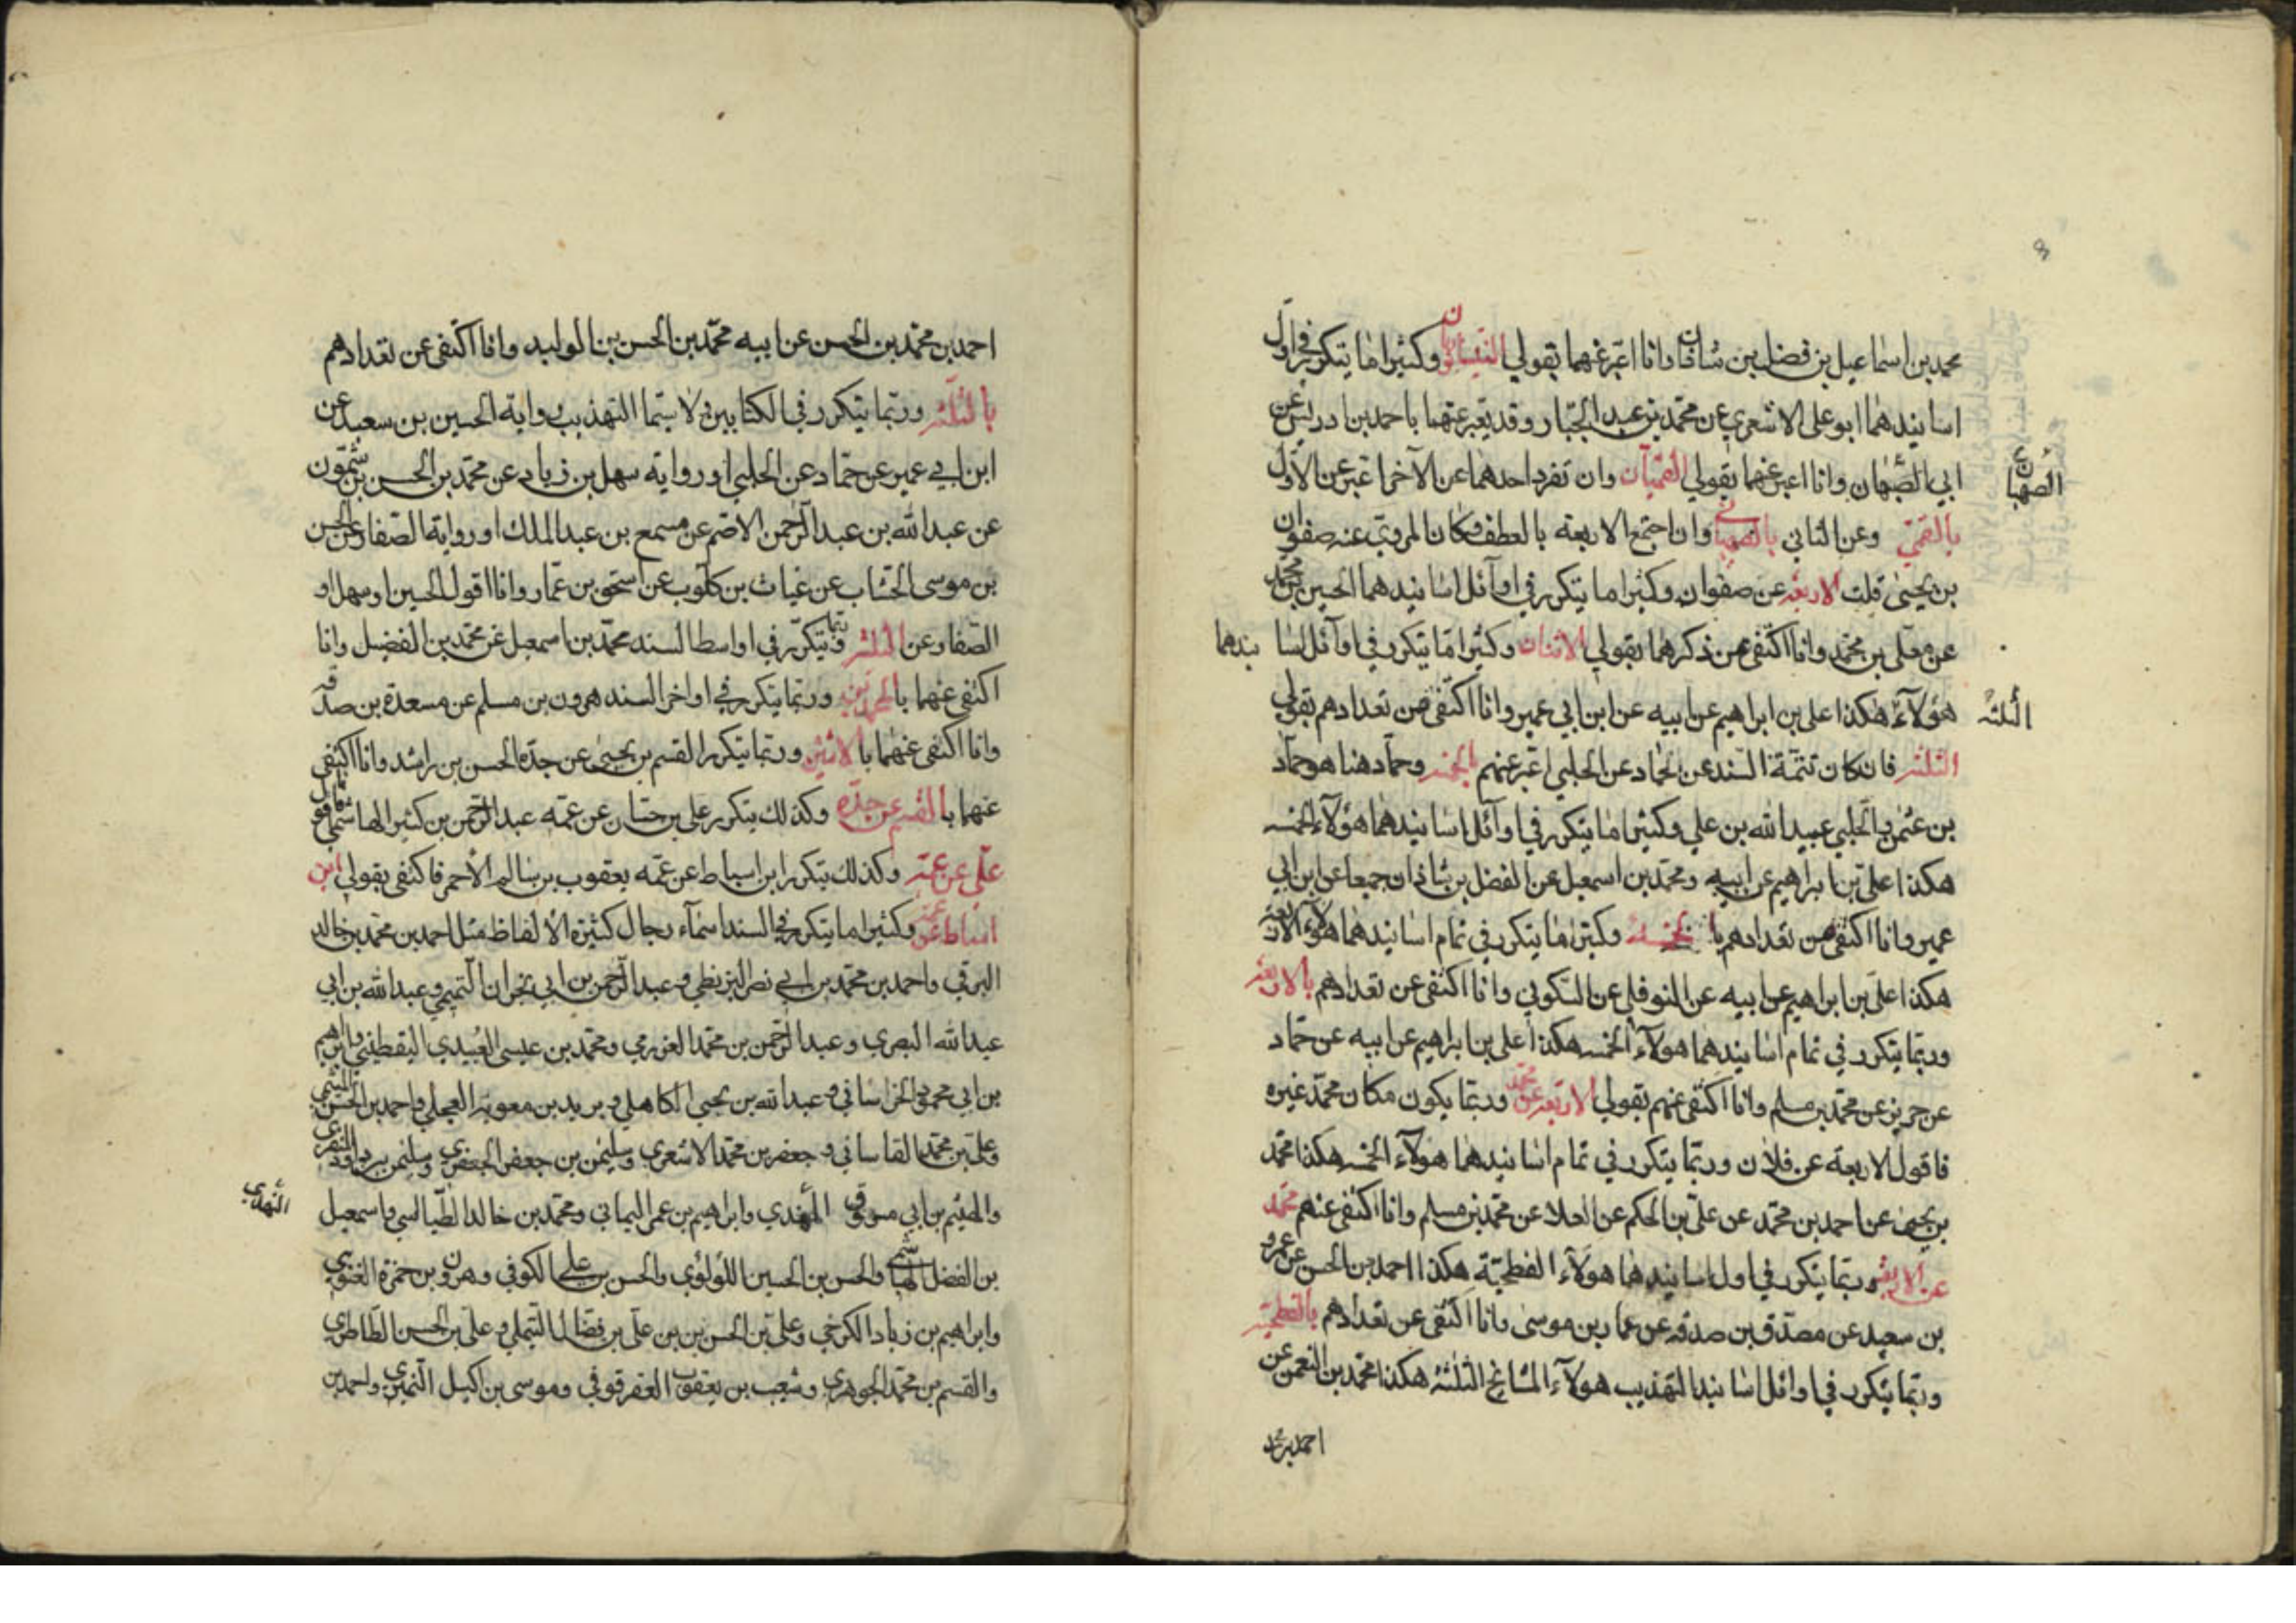 محمد بن اسماعيل بن فضل بن شاذان وانا اعبر عنهما بقولي النيسابوريان وكثيرا ما يتكرر في اول
اسانيدهما ابو علي الاشعري عن محمد بن عبد الجبار وقد يعبر عنهما باحمد بن ادريس عن
ابي الصهبان وانا اعبر عنهما بقولي القميان وان تفرد احدهما عن الآخر اعبر عن الاول
الصهبان
بالقمي وعن الثاني بالصهباني وان اجتمع الاربعة بالعطف وكان المروي عنه صفوان
بن يحيى قلت الاربعة عن صفوان وكثيرا ما يتكرر في اوآئل اسانيدهما الحسين بن محمد
عن معلى بن محمد وانا اكتفي عن ذكرهما بقولي الاثنان وكثيرا ما يتكرر في اوآئل اسا نيدهما
هؤلآء هكذا علي بن ابراهيم عن ابيه عن ابن ابي عمير وانا اكتفي عن تعدادهم بقولي
الثلثة
الثلثة فان كان تتمة السند عن الحماد عن الحلبي اعبر عنهم بالخمسة وحماد هنا هو حماد
بن عثمن والحلبي عبيد الله بن علي وكثيرا ما يتكرر في اوآئل اسانيدهما هؤلآء الخمسه
هكذا علي بن ابراهيم عن ابيه ومحمد بن اسمعيل عن الفضل بن شاذان جميعا عن ابن ابي
عمير وانا اكتفي عن تعدادهم بالخمسة وكثيرا ما يتكرر في تمام اسانيدهما هؤلآء الاربعة
هكذا علي بن ابراهيم عن ابيه عن النوفلي عن السكوني وانا اكتفي عن تعدادهم بالاربعة
وربما يتكرر في تمام اسانيدهما هولآء الخمسه هكذا علي بن ابراهيم عن ابيه عن حماد
عن حريز عن محمد بن مسلم وانا اكتفي عنهم بقولي الاربعة عن محمد وربما يكون مكان محمد غيره
فاقول الاربعة عن فلان وربما يتكرر في تمام اسانيدهما هولآء الخمسه هكذا محمد
بن يحيى عن احمد بن محمد عن علي بن الحكم عن العلا عن محمد بن مسلم وانا اكتفي عنهم محمد
عن الاربعة وربما يتكرر في اول اسانيدهما هولآء الفطحية هكذا احمد بن الحسن عن عمرو
بن سعيد عن مصدق بن صدقه عن عمار بن موسى وانا اكتفي عن تعدادهم بالفطحية
وربما يتكرر في اوائل اسانيد التهذيب هولآء المشايخ الثلثة هكذا محمد بن النعمن عن
احمد بن محمد
احمد بن محمد بن الحسن عن ابيه محمد بن الحسن بن الوليد وانا اكتفي عن تعدادهم
بالثلثة وربما يتكرر في الكتابين لا سيما التهذيب رواية الحسين بن سعيد عن
ابن ابي عمير عن حماد عن الحلبي او رواية سهل بن زياد عن محمد بن الحسن بن شمون
عن عبد الله بن عبد الرحمن الاصم عن مسمع بن عبد الملك او رواية الصفار عن الحسن
بن موسى الخشاب عن غياث بن كلوب عن اسحق بن عمار وانا اقول الحسين او سهل او
الصفار عن الثلثة وربما يتكرر في اواسط السند محمد بن اسمعيل عن محمد بن الفضيل وانا
اكتفي عنهما بالمحمدين وربما يتكرر في اواخر السند هرون بن مسلم عن مسعدة بن صدقه
وانا اكتفي عنهما بالاثنين وربما يتكرر القسم بن يحيى عن جده الحسن بن راشد وانا اكتفي
عنهما بالقسم عن جده وكذلك يتكرر علي بن حسان عن عمه عبد الرحمن بن كثير الهاشمي فاقول
علي عن عمه وكذلك يتكرر ابن اسباط عن عمه يعقوب بن سالم الاحمر فاكتفي بقولي ابن
اسباط عن عمه وكثيرا ما يتكرر في السند اسمآء رجال كثيرة الالفاظ مثل احمد بن محمد بن خالد
البرقي واحمد بن محمد بن ابي نصر البزنطي وعبد الرحمن بن ابي نجران التميمي وعبد الله بن ابي
عبد الله البصري وعبد الرحمن بن محمد العرزمي ومحمد بن عيسى العبيدي اليقطيني وابراهيم
بن ابي محمود الخراساني وعبد الله بن يحيى الكاهلي وبريد بن معوية العجلي واحمد بن الحسن الميثمي
وعلي بن محمد القاساني وجعفر بن محمد الاشعري وسليمن بن جعفر الجعفري وسليمن بن داود المنقري
والهيثم بن ابي مسروق النهدي وابراهيم بن عمر اليماني ومحمد بن خالد الطيالسي واسمعيل
النهدي
بن الفضل الهاشمي والحسن بن الحسين اللؤلؤي والحسن بن علي الكوفي وهرون بن حمزة الغنوي
وابراهيم بن زياد الكرخي وعلي بن الحسن بن علي بن فضال التيملي وعلي بن الحسن الطاطري
والقسم بن محمد الجوهري وشعيب بن يعقوب العقرقوفي وموسى بن اكيل النميري واحمد بن